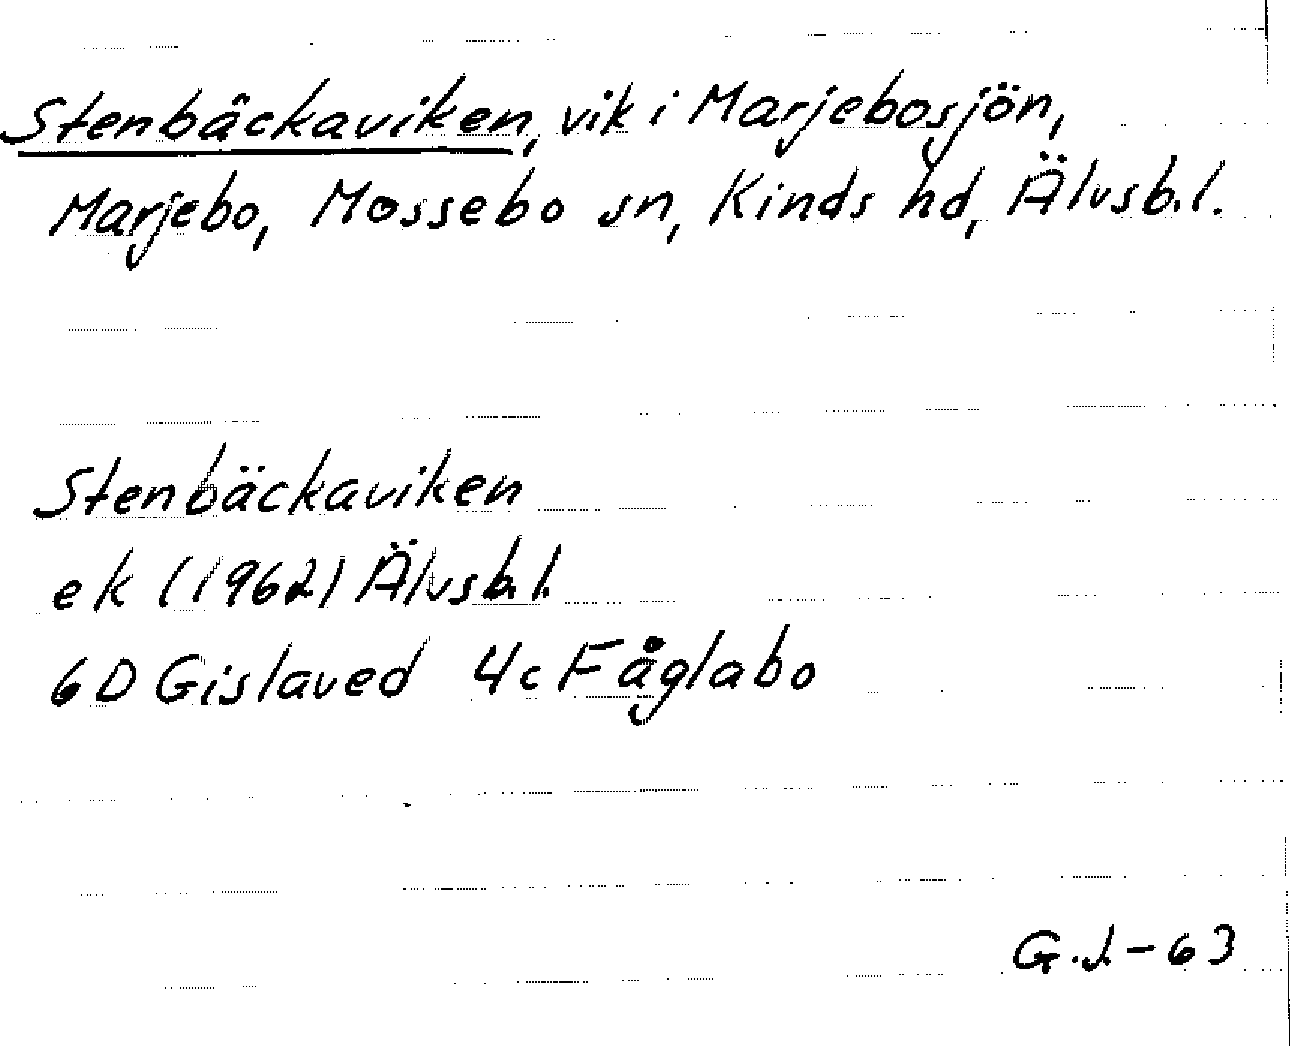 Stenbäckaviken, vik i Marjebosjön,
Marjebo, Mossebo sn, Kinds hd, Älvsb.l.
Stenbäckaviken
ek (1962) Älvsb.l.
6D Gislaved 4c Fåglabo
G.J.-63